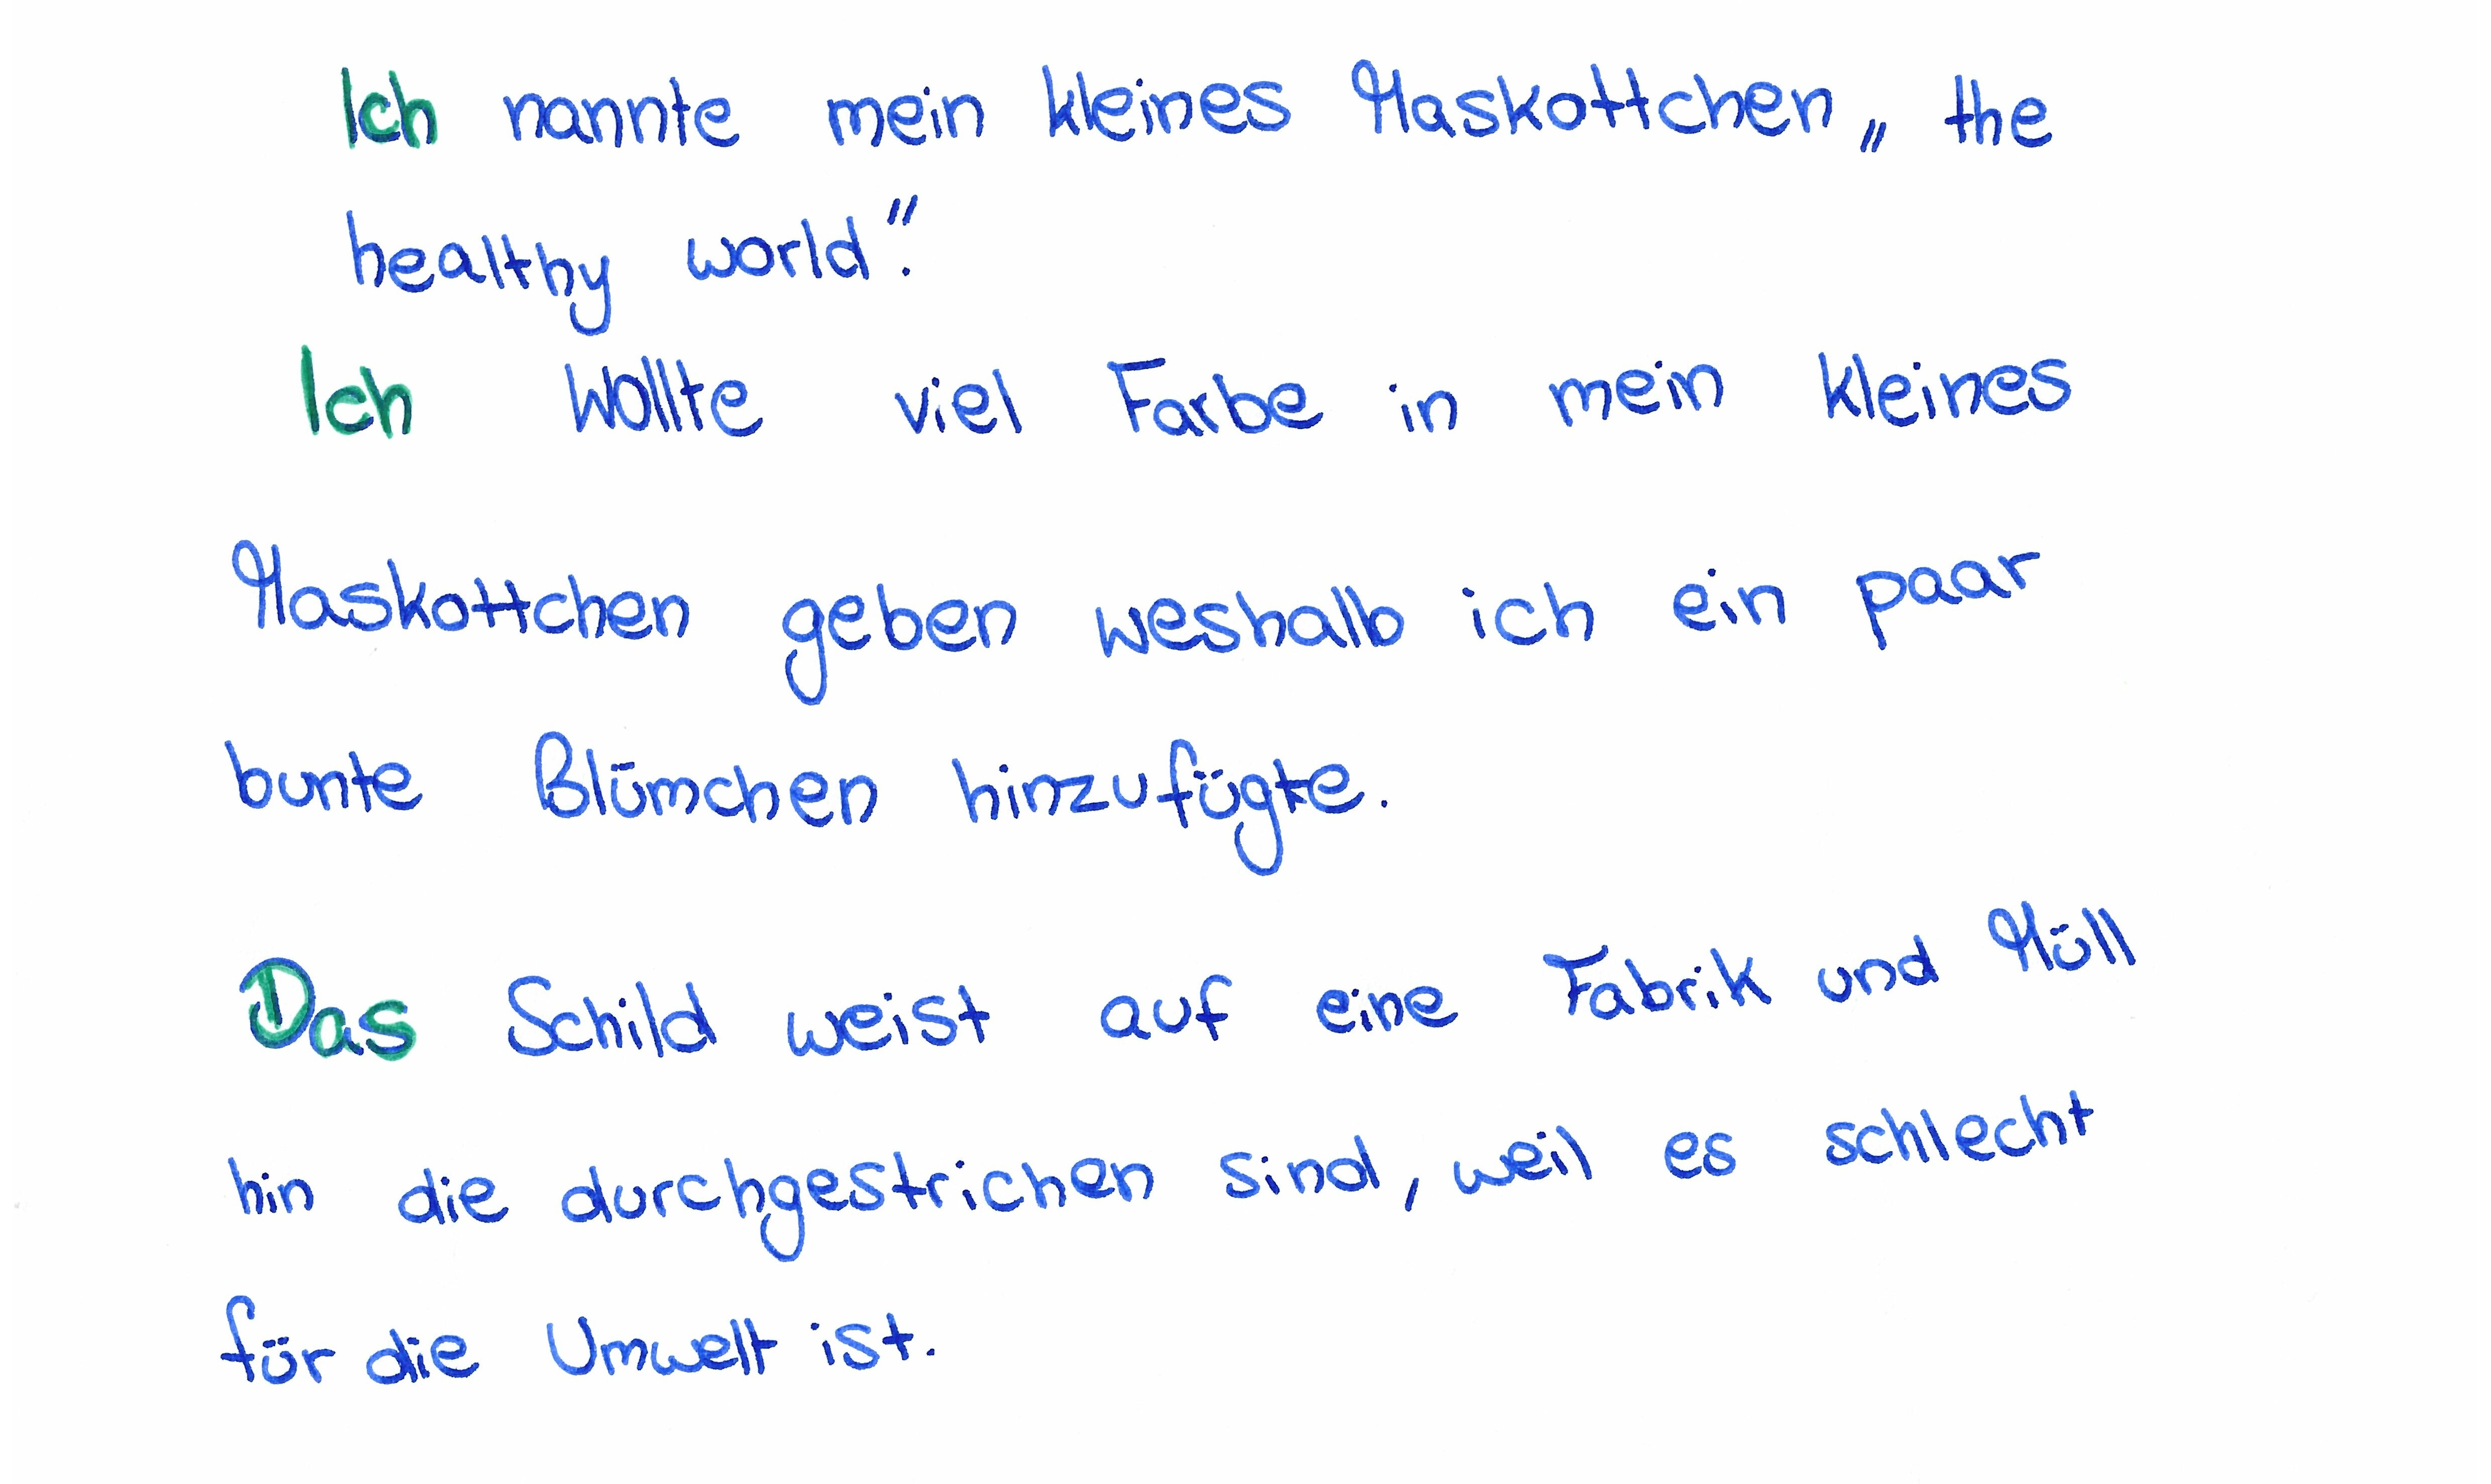 Ich nannte mein kleines Maskottchen „ the
healthy world“.
Ich Wollte viel Farbe in mein kleines
Maskottchen geben weshalb ich ein paar
bunte Blümchen hinzufügte.
Das Schild weist auf eine Fabrik und Müll
hin die durchgestrichen sind, weil es schlecht
für die Umwelt ist.